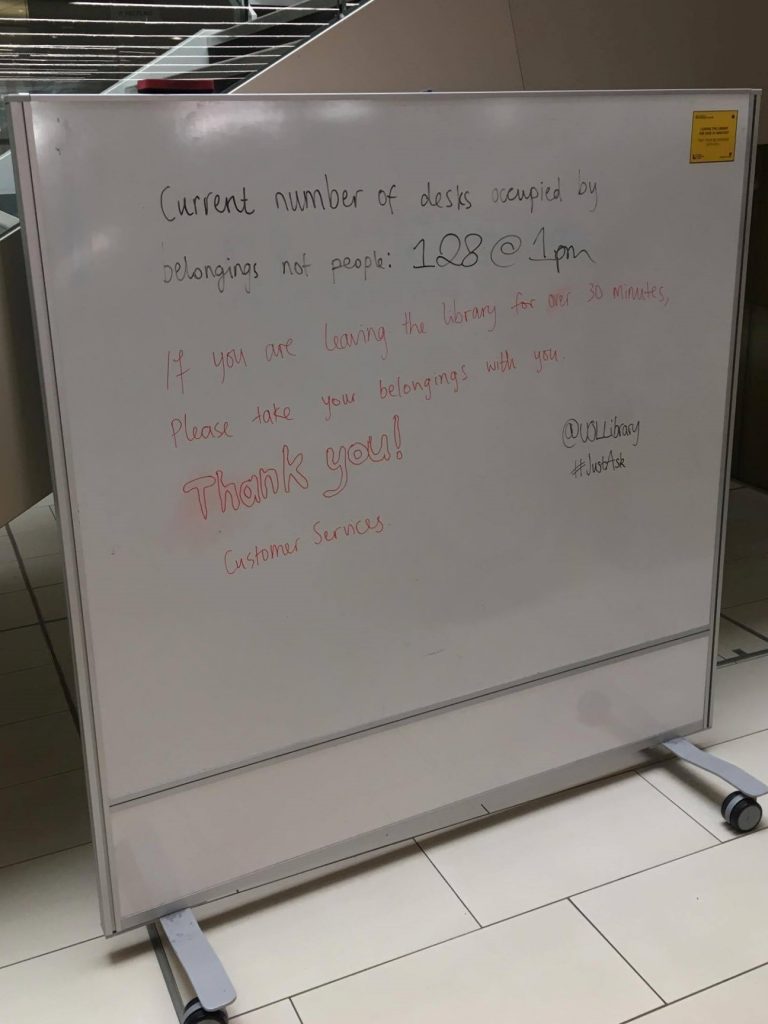 Current number of desks occupied by
belongings not people: 128 @ 1pm
If you are leaving the library for over 30 minutes,
Please take your belongings with you.
Thank you!
Customer Services.
@UOLLibrary
#JustAsk